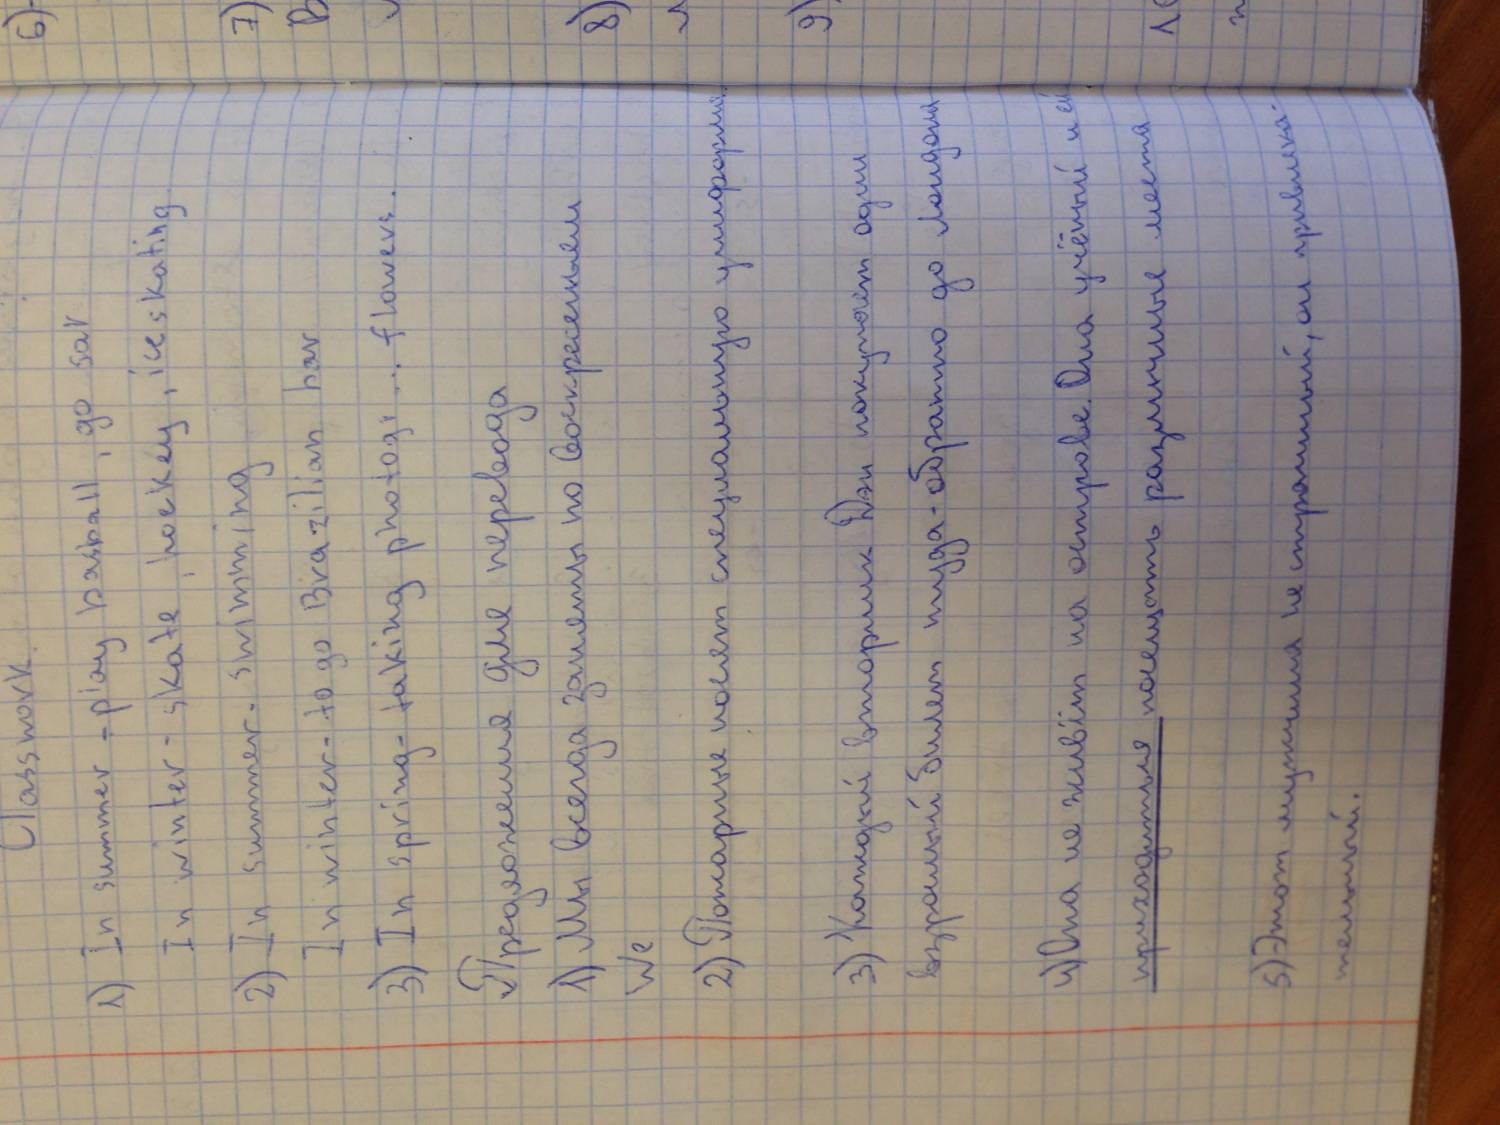 Classwork.
1) In summer - play basball, go sar
In winter - skate, hockey, ice skating
2) In summer - swimming
In winter - to go Brazilian bar
3) In spring - taking photogr... flowers..
Предложения для перевода
1) Мы всегда заняты по воскресеньям
We
2) Пожарные носят специальную униформу.
3) Каждый вторник Дэн покупает один
взрослый билет туда-обратно до Лондона
4) Она не живёт на острове. Она учёный и ей
приходиться посещать различные места
5) Этот мужчина не странный, он привлека-
тельный.
6)
7)
В
8)
9)